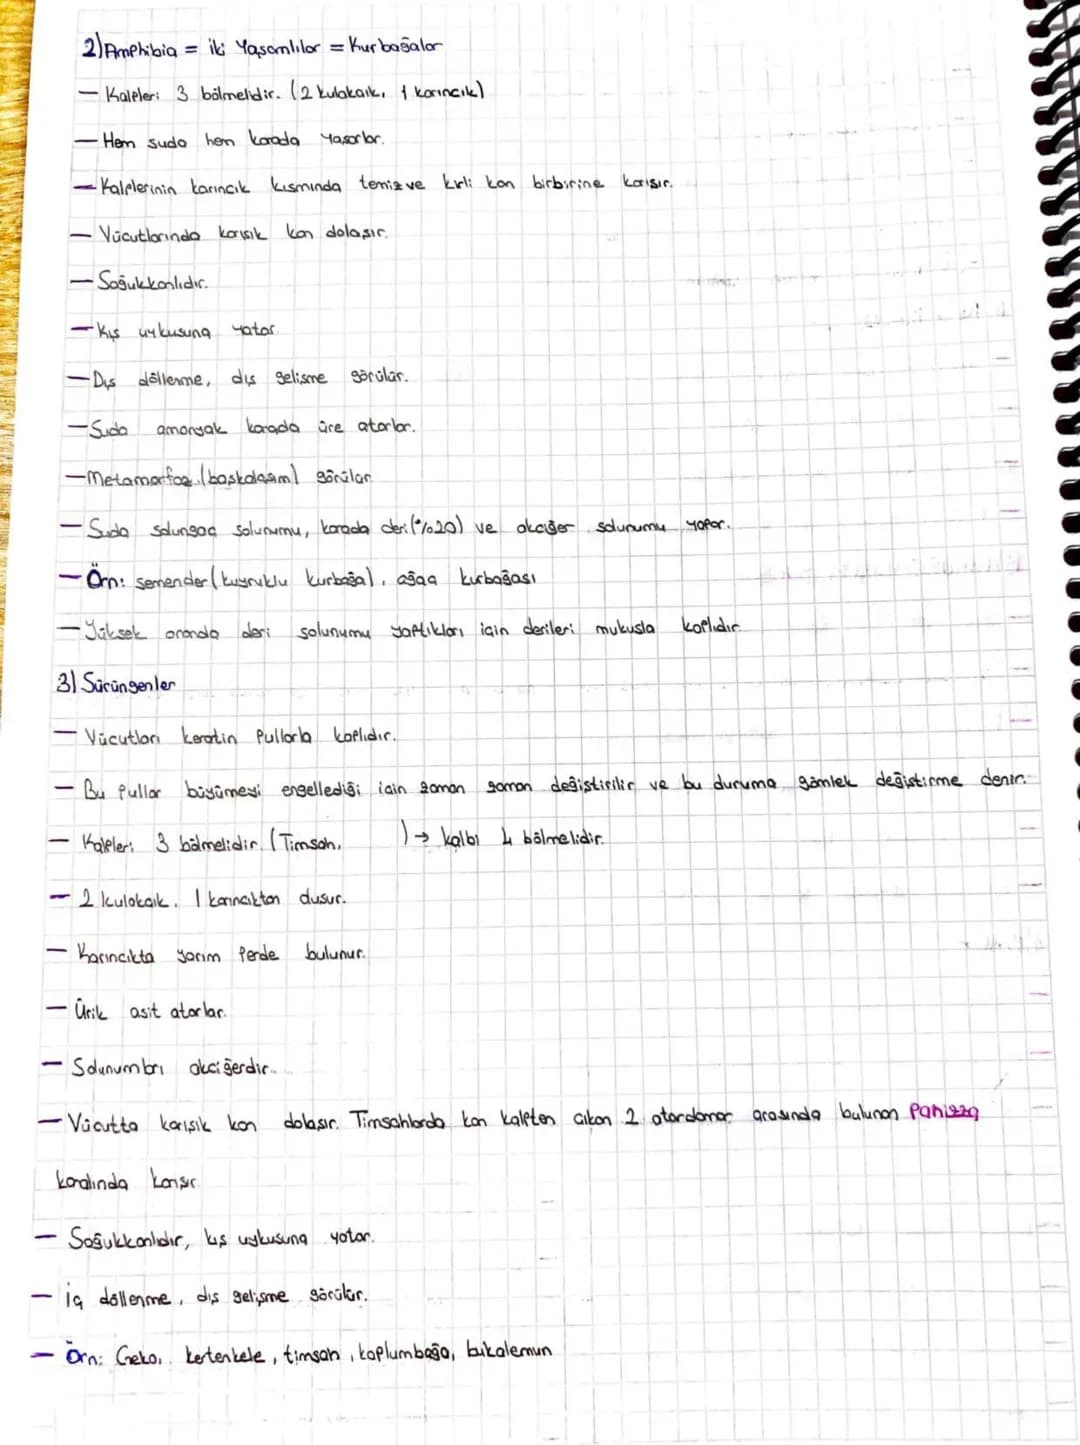 2) Amphibia = iki Yaşamlılar = Kurbağalar
— Kalpleri 3 bölmelidir. (2 kulakcık, 1 karıncık)
— Hem suda hem karada yaşarlar.
— Kalplerinin karıncık kısmında temiz ve kirli kan birbirine karışır.
— Vücutlarında karışık kan dolaşır.
— Soğukkanlıdır.
— Kış uykusuna yatar
— Dış döllenme, dış gelişme görülür.
— Suda amonyak karada üre atarlar.
— Metamorfoz (başkalaşım) görülür
— Suda solungaç solunumu, karada deri (%20) ve akciğer solunumu yapar.
— Örn: semender (kuyruklu kurbağa), ağaç kurbağası
— Yüksek oranda deri solunumu yaptıkları için derileri mukusla kaplıdır
3) Sürüngenler
— Vücutları keratin Pullarla kaplıdır.
— Bu Pullar büyümeyi engellediği için zaman zaman değiştirilir ve bu duruma gömlek değiştirme denir.
— Kalpleri 3 bölmelidir. (Timsah, ) → kalbi 4 bölmelidir.
— 2 kulakcık, 1 karıncıktan oluşur.
— Karıncıkta yarım Perde bulunur.
— Ürik asit atarlar.
— Solunumları akciğerdir.
— Vücutta karışık kan dolaşır. Timsahlarda kan kalpten çıkan 2 atardamar arasında bulunan Panizza
kanalında karışır
— Soğukkanlıdır, kış uykusuna yatar.
— iç döllenme, dış gelişme görülür.
— Örn: Geko, kertenkele, timsah, kaplumbağa, bukalemun